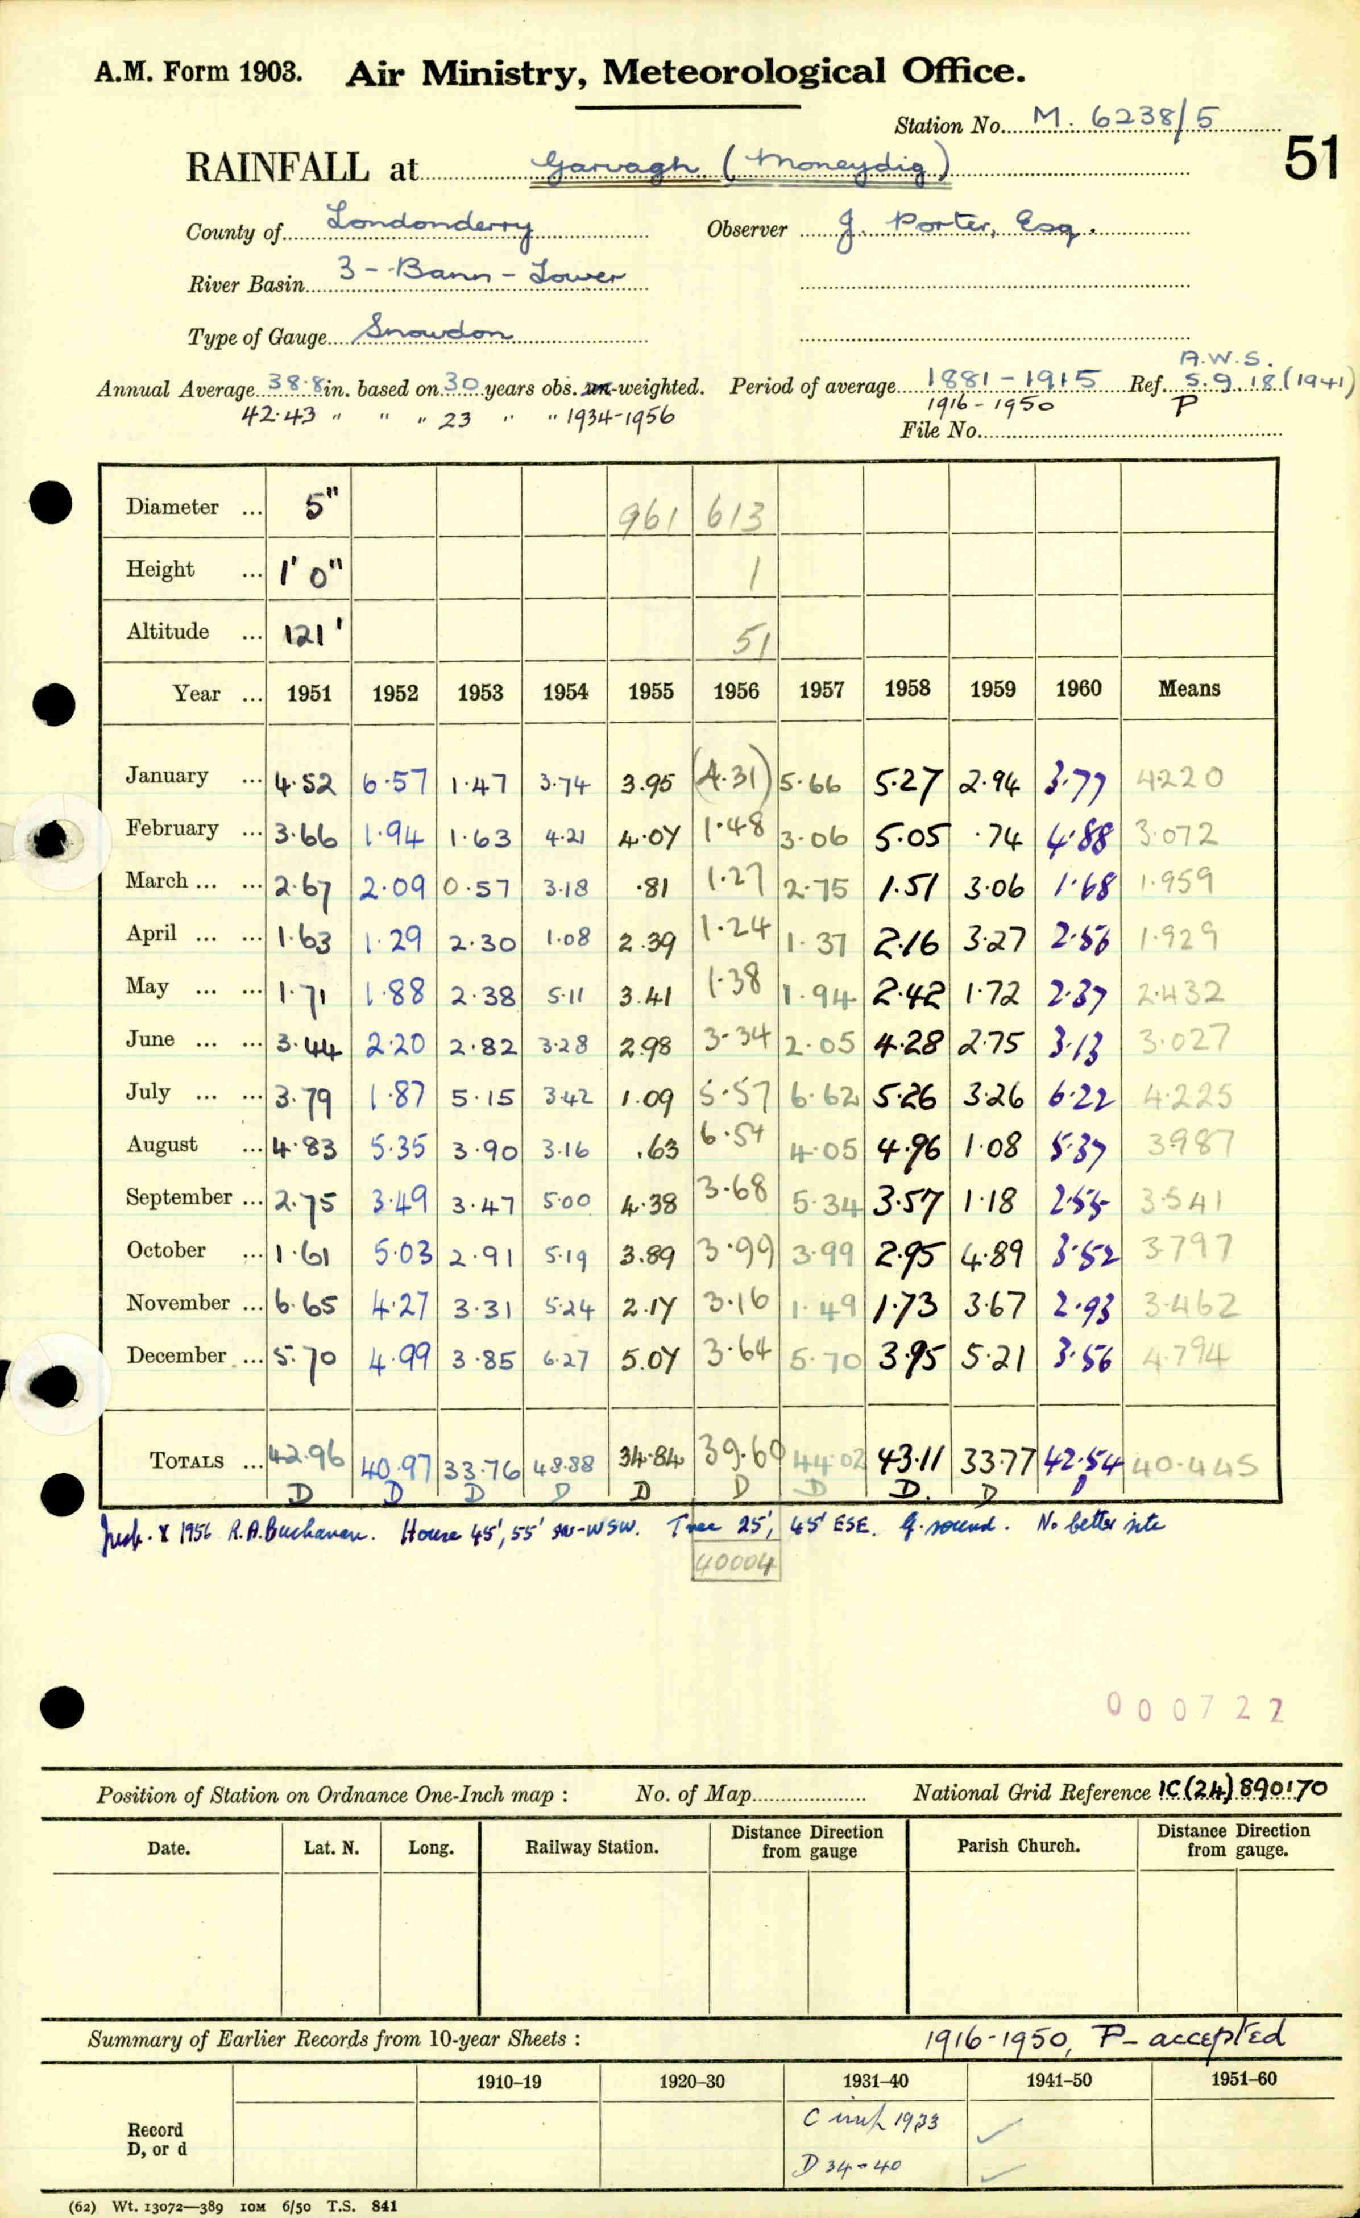 A.M. Form 1903. Air Ministry, Meteorological Office.
Station No. M. 6238/5
51
RAINFALL at Garvagh (Moneydig)
County of Londonderry Observer J. Porter, Esq.
River Basin 3 - Bann - Lower
Type of Gauge Snowdon
A.W.S.
Annual Average 38.8 in. based on 30 years obs. un-weighted. Period of average 1881-1915 Ref. S.9.18 (1941)
42.43 " " " 23 " " 1934-1956 1916-1950 P
File No.
Diameter ... 5" 961 613
Height ... 1' 0" 1
Altitude ... 121' 51
Year ... 1951 1952 1953 1954 1955 1956 1957 1958 1959 1960 Means
January ... 4.52 6.57 1.47 3.74 3.95 (4.31) 5.66 5.27 2.94 3.77 4220
February ... 3.66 1.94 1.63 4.21 4.07 1.48 3.06 5.05 .74 4.88 3.072
March ... ... 2.67 2.09 0.57 3.18 .81 1.27 2.75 1.51 3.06 1.68 1.959
April ... ... 1.63 1.29 2.30 1.08 2.39 1.24 1.37 2.16 3.27 2.56 1.929
May ... ... 1.71 1.88 2.38 5.11 3.41 1.38 1.94 2.42 1.72 2.37 2.432
June ... ... 3.44 2.20 2.82 3.28 2.98 3.34 2.05 4.28 2.75 3.13 3.027
July ... ... 3.79 1.87 5.15 3.42 1.09 5.57 6.62 5.26 3.26 6.22 4.225
August ... 4.83 5.35 3.90 3.16 .63 6.54 4.05 4.96 1.08 5.37 3987
September ... 2.75 3.49 3.47 5.00 4.38 3.68 5.34 3.57 1.18 2.55 3.541
October ... 1.61 5.03 2.91 5.19 3.89 3.99 3.99 2.95 4.89 3.52 3797
November ... 6.65 4.27 3.31 5.24 2.17 3.16 1.49 1.73 3.67 2.93 3.462
December ... 5.70 4.99 3.85 6.27 5.07 3.64 5.70 3.95 5.21 3.56 4.794
TOTALS ... 42.96 40.97 33.76 48.88 34.84 39.60 44.02 43.11 33.77 42.54 40.445
D D D D D D D D. D D
Insp. X 1956 R.A. Buchanan. House 45', 55' SW-WSW. Tree 25', 45' ESE. G. sound. No better site
40004
000722
Position of Station on Ordnance One-Inch map : No. of Map National Grid Reference IC(24)890170
Date. Lat. N. Long. Railway Station. Distance Direction from gauge Parish Church. Distance Direction from gauge.
Summary of Earlier Records from 10-year Sheets : 1916-1950, P- accepted
1910–19 1920–30 1931–40 1941–50 1951–60
Record
D, or d
C 1933
D 34-40
(62) Wt. 13072—389 10M 6/50 T.S. 841